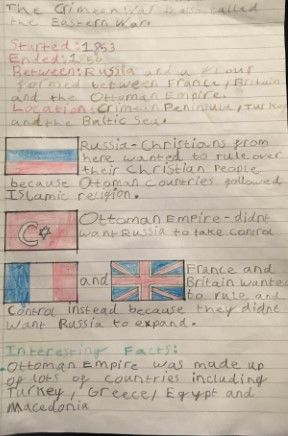 The Crimean War is also called
the Eastern War.
Started: 1853
Ended:
Between: Russia and a group
formed between France, Britain
and the Ottoman Empire.
Location: Crimean Peninsula, Turkey
and the Baltic Sea.
Russia - Christians from
here wanted to rule over
their Christian People
because Ottoman Countries followed
Islamic religion.
Ottoman Empire - didnt
want Russia to take control
and
France and
Britain wanted
to rule and
Control instead because they didnt
want Russia to expand.
Interesting Facts:
Ottoman Empire was made up
of lots of countries including
Turkey, Greece, Egypt and
Macedonia